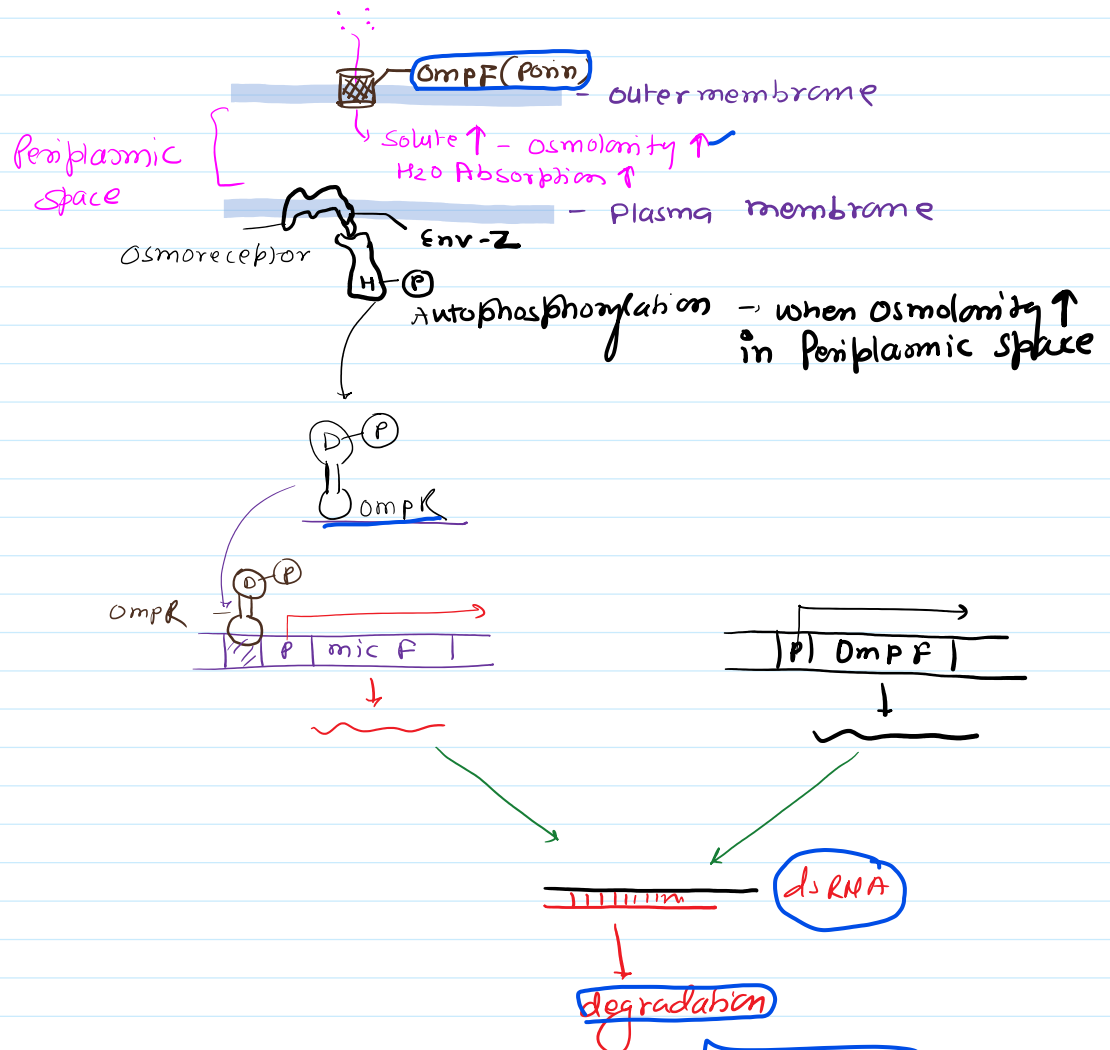 OmpF (Porin)
- outer membrane
Periplasmic
space
Solute ↑ - Osmolarity ↑
H2O Absorption ↑
- Plasma membrane
Osmoreceptor
Env-Z
H - P
Autophosphorylation → when Osmolarity ↑
in Periplasmic space
D - P
OmpR
D - P
OmpR
P mic F
P OmpF
dsRNA
degradation